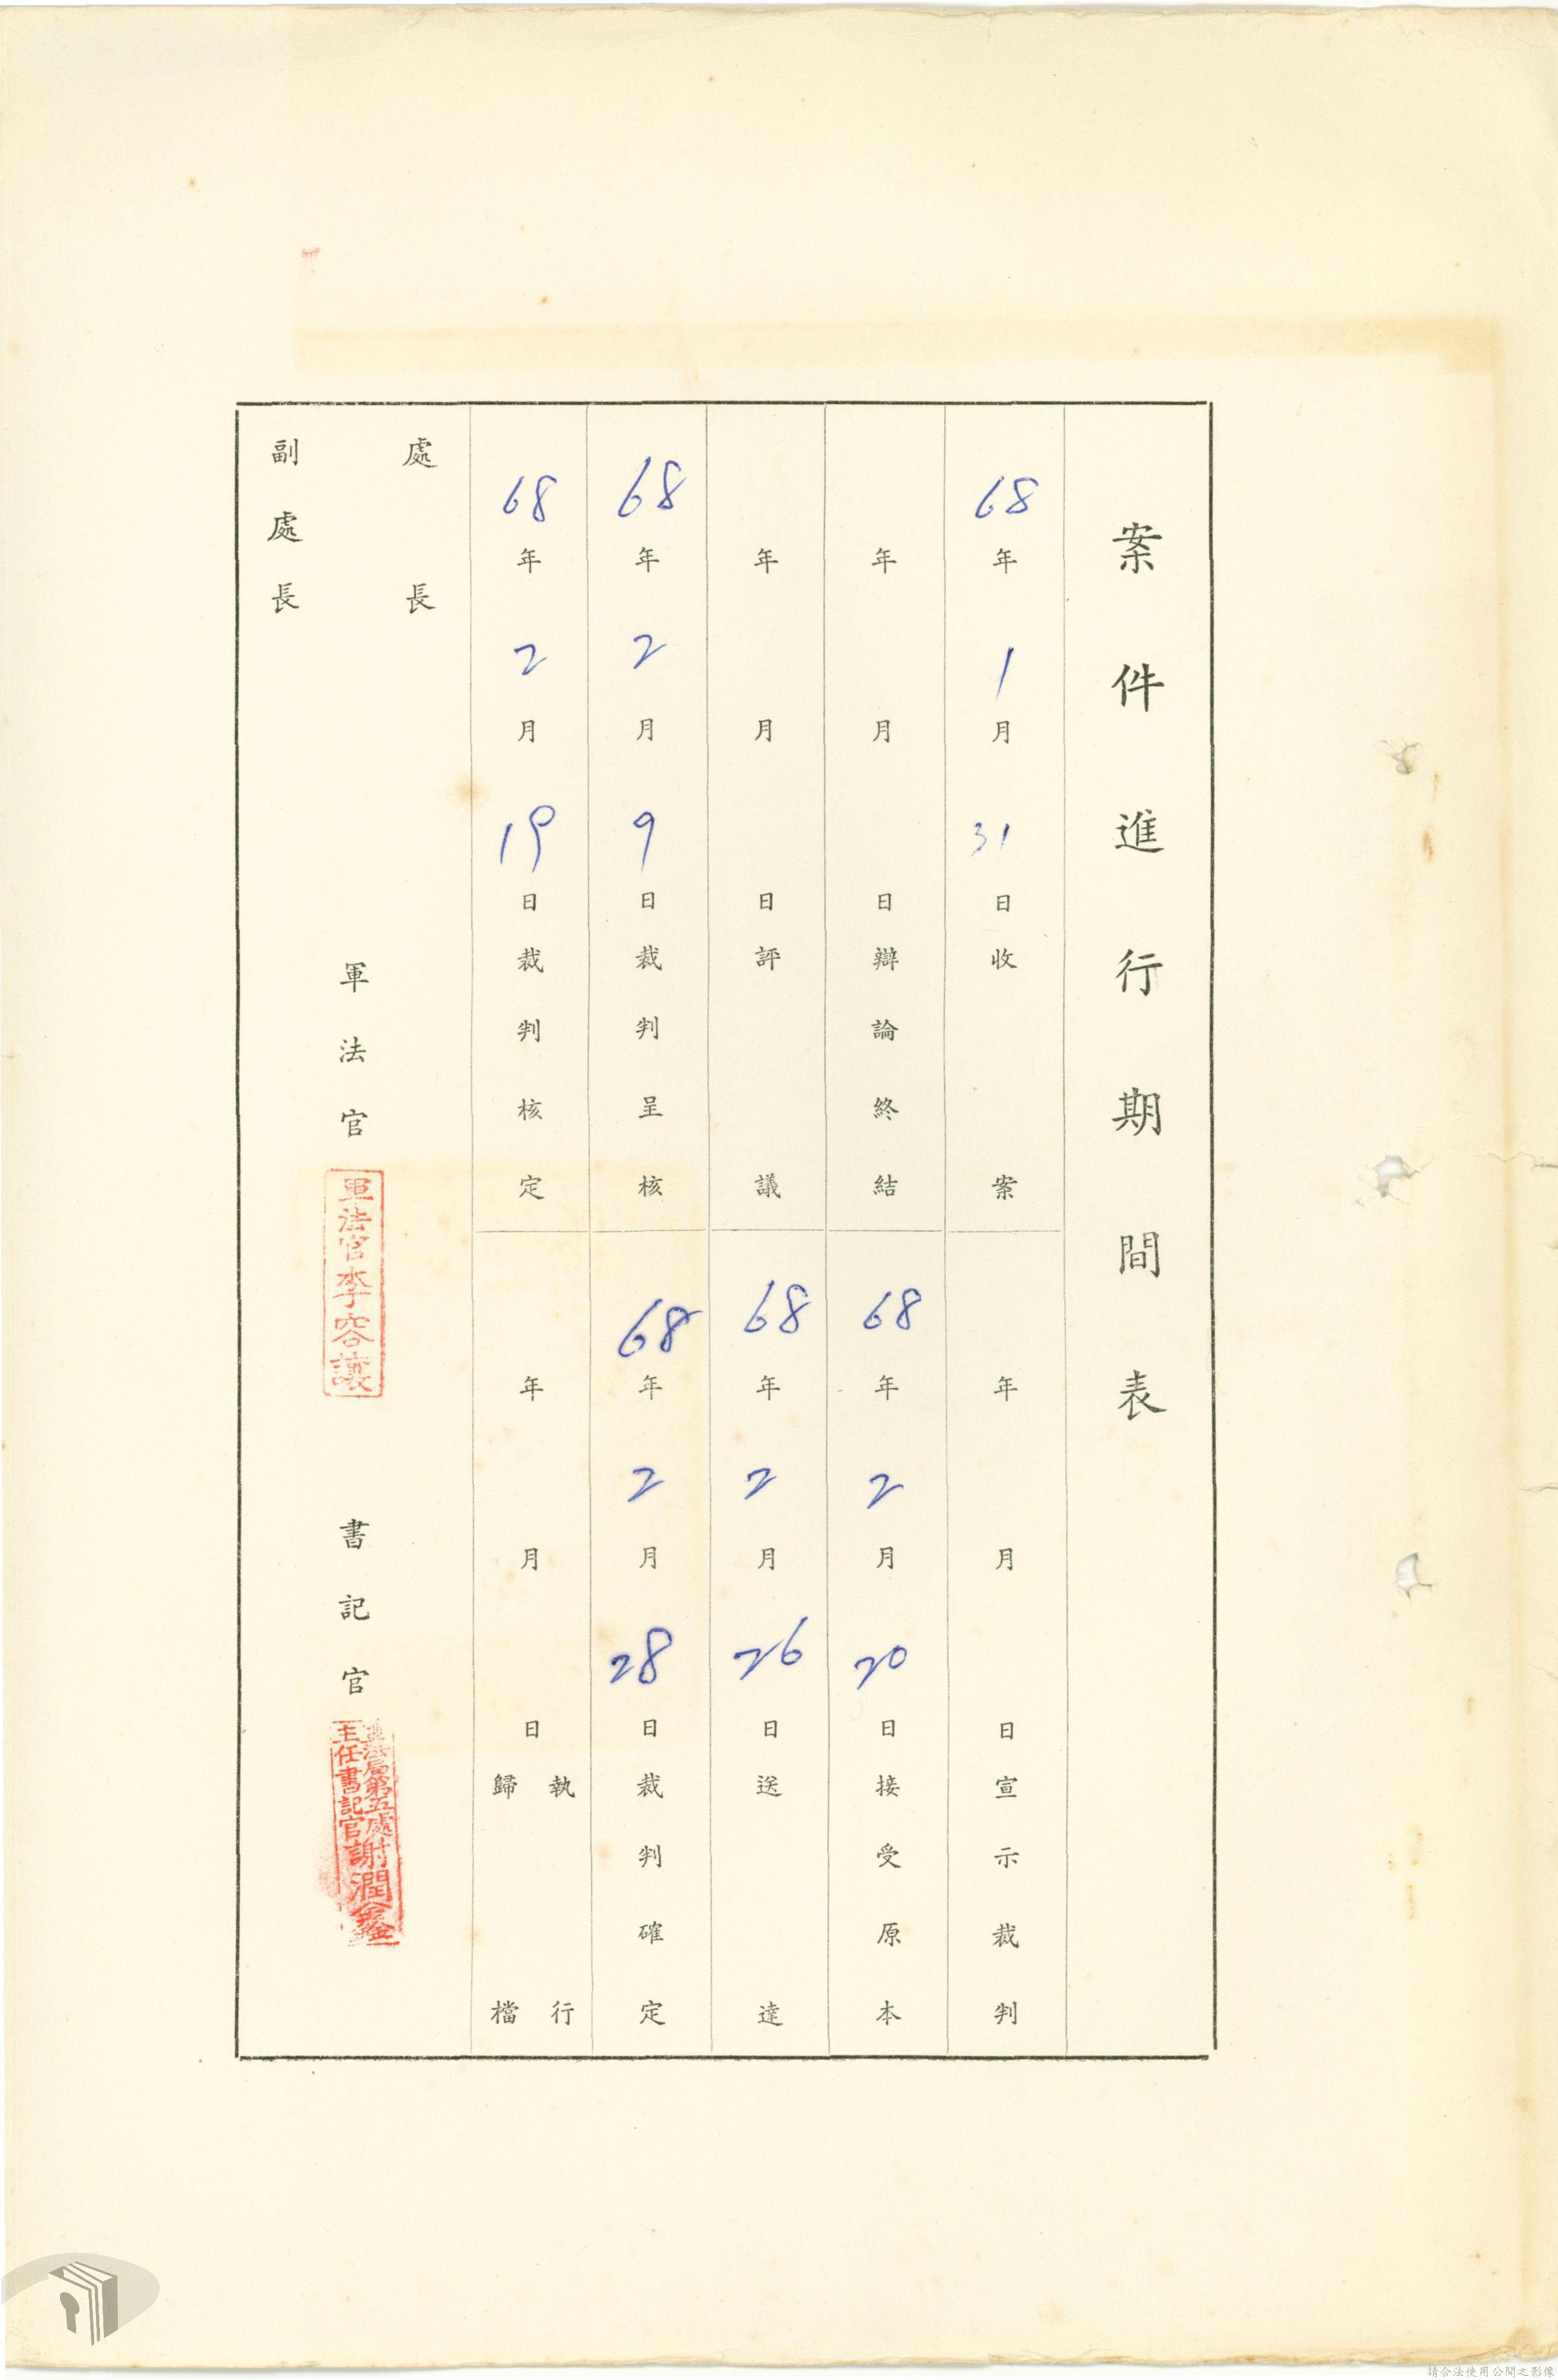 案件進行期間表
68年1月31日收案
年月日宣示裁判
年月日辯論終結
68年2月20日接受原本
年月日評議
68年2月26日送達
68年2月9日裁判呈核
68年2月28日裁判確定
68年2月19日裁判核定
年月日執行
歸檔
處長
副處長
軍法官
軍法官李容讓
書記官
軍法局第五處
主任書記官謝潤鑫
請合法使用公開之影像